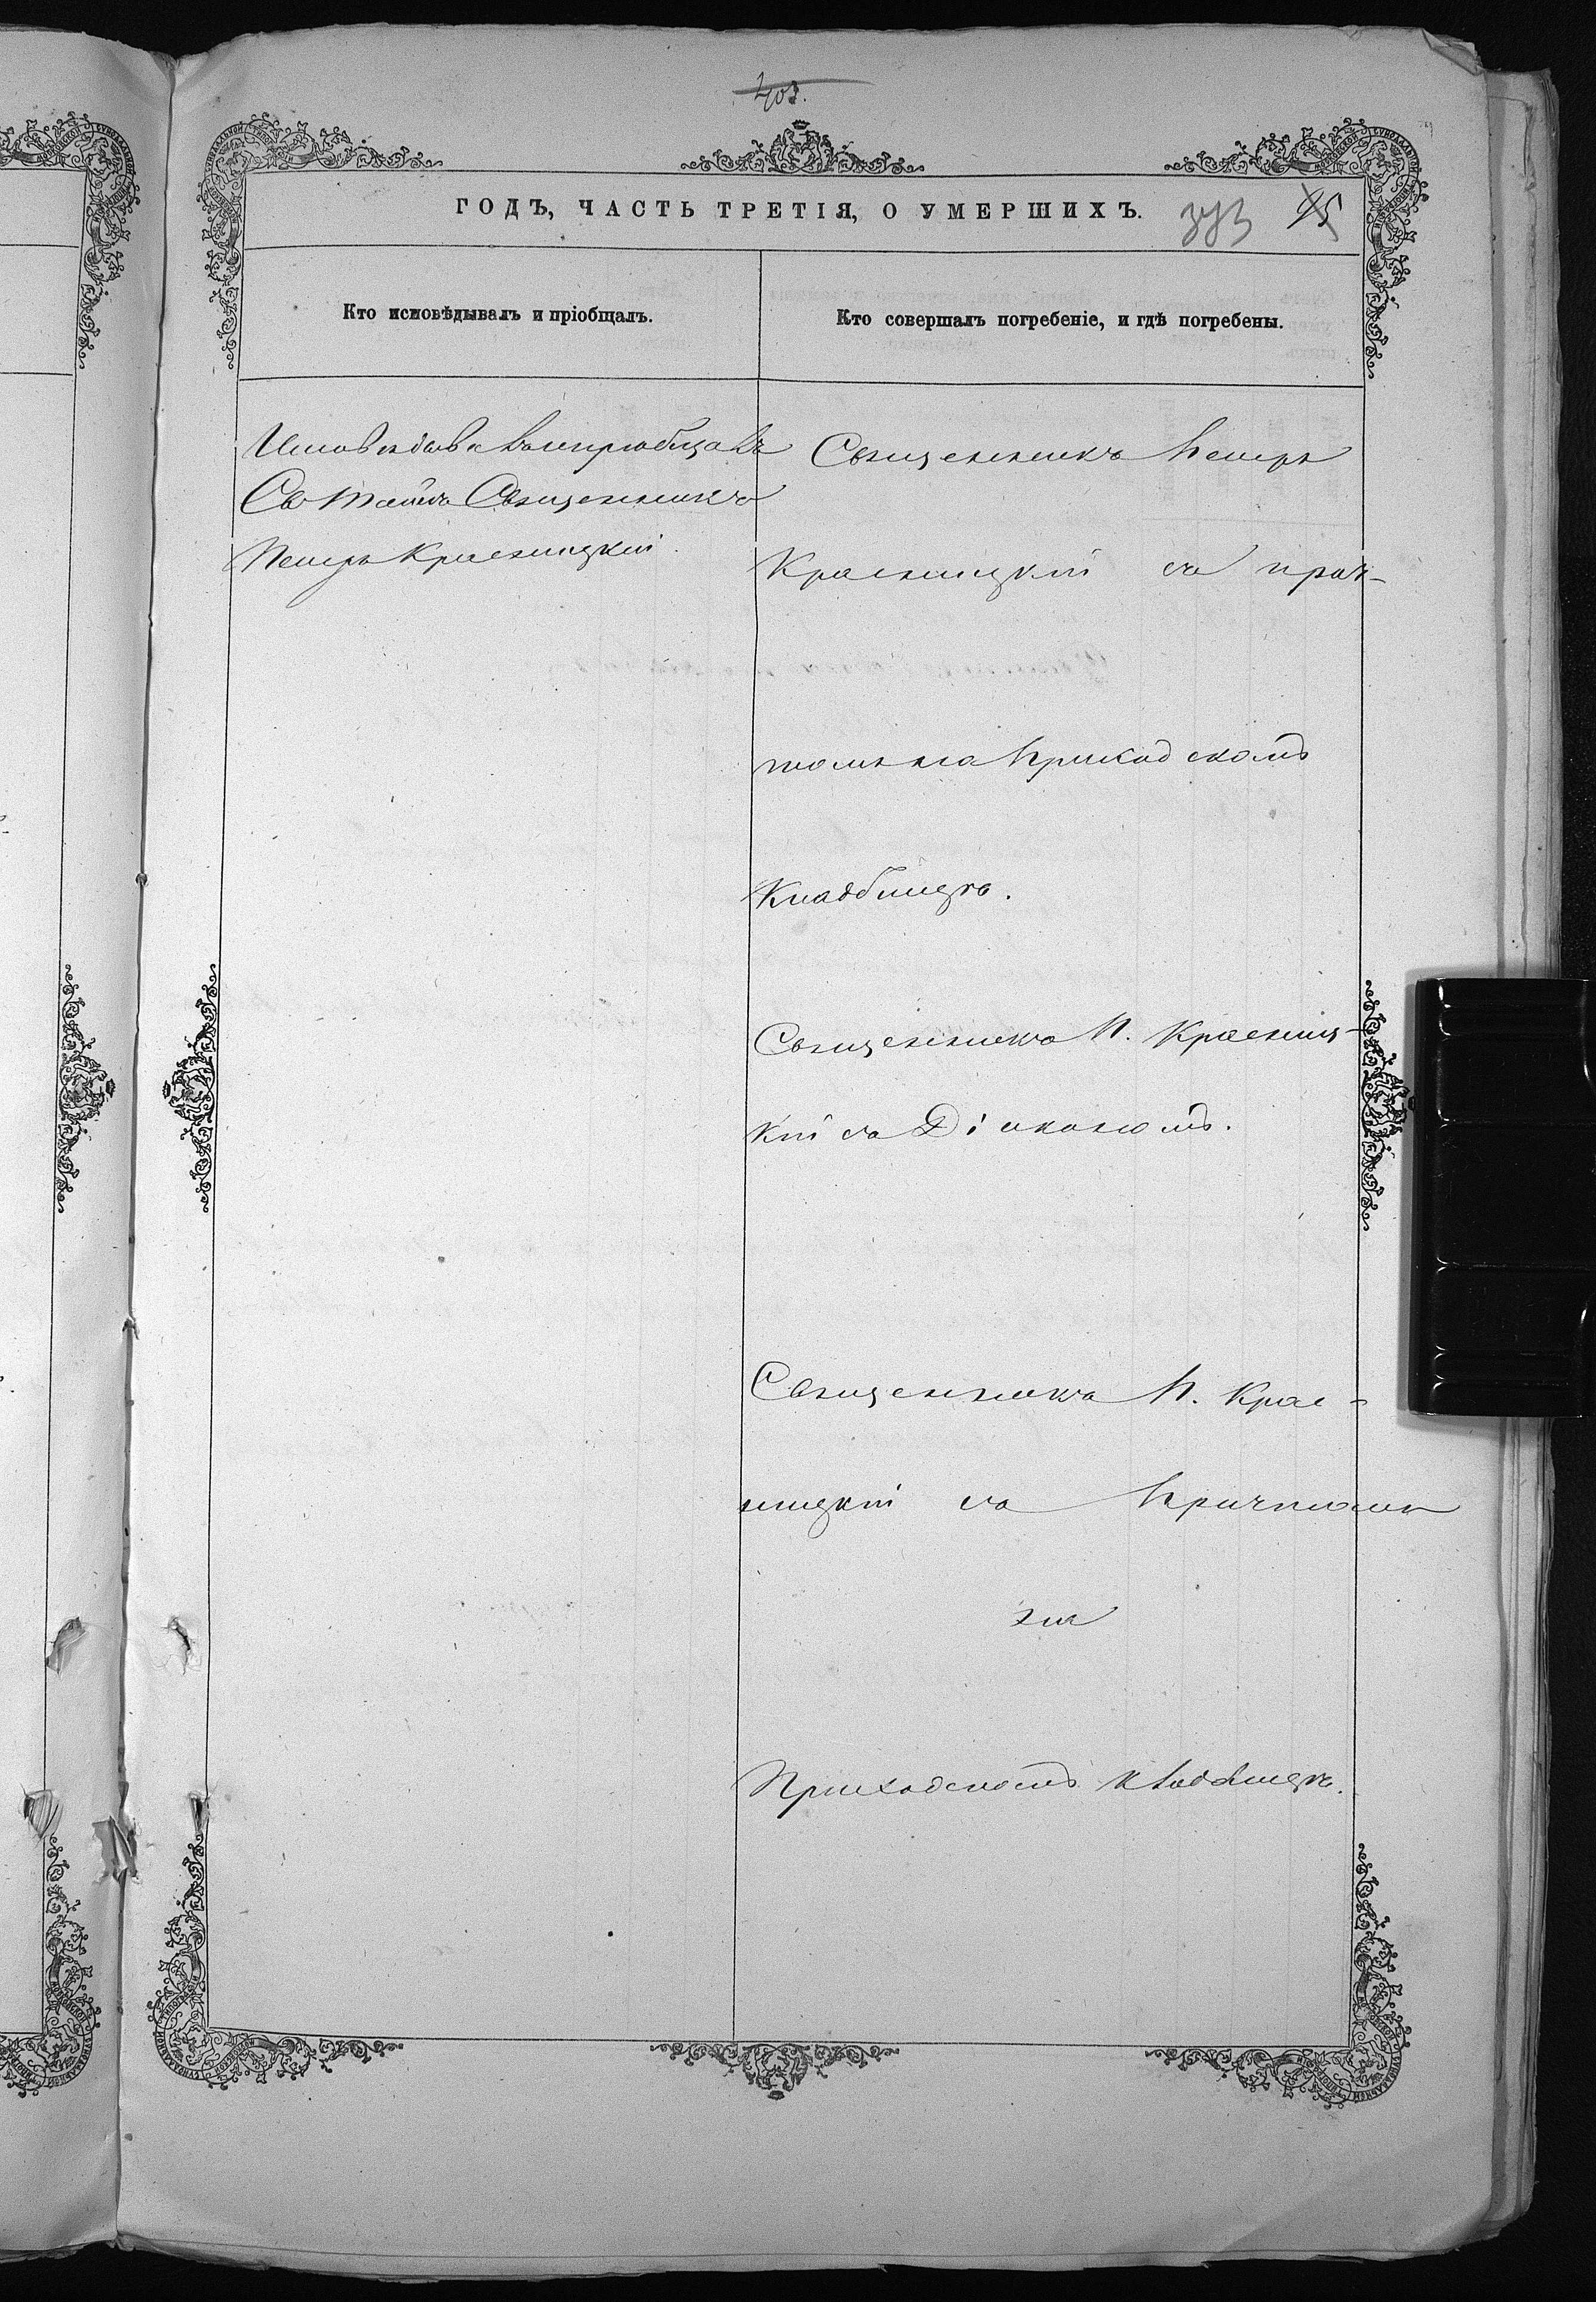 403.
ГОДЪ, ЧАСТЬ ТРЕТІЯ, О УМЕРШИХЪ.
Кто исповѣдывалъ и пріобщалъ.
Кто совершалъ погребеніе, и гдѣ погребены.
Исповѣдывалъ и приобщалъ
Св Таинъ Священникъ
Петръ Красницкій.
Священникъ Петръ
Красницкій съ прич-
томъ на Приходскомъ
Кладбищѣ.
Священникъ П. Красниц-
кій съ Діакономъ.
Священникъ П. Крас-
ницкій съ Причтомъ
на
Приходскомъ Кладбищѣ.